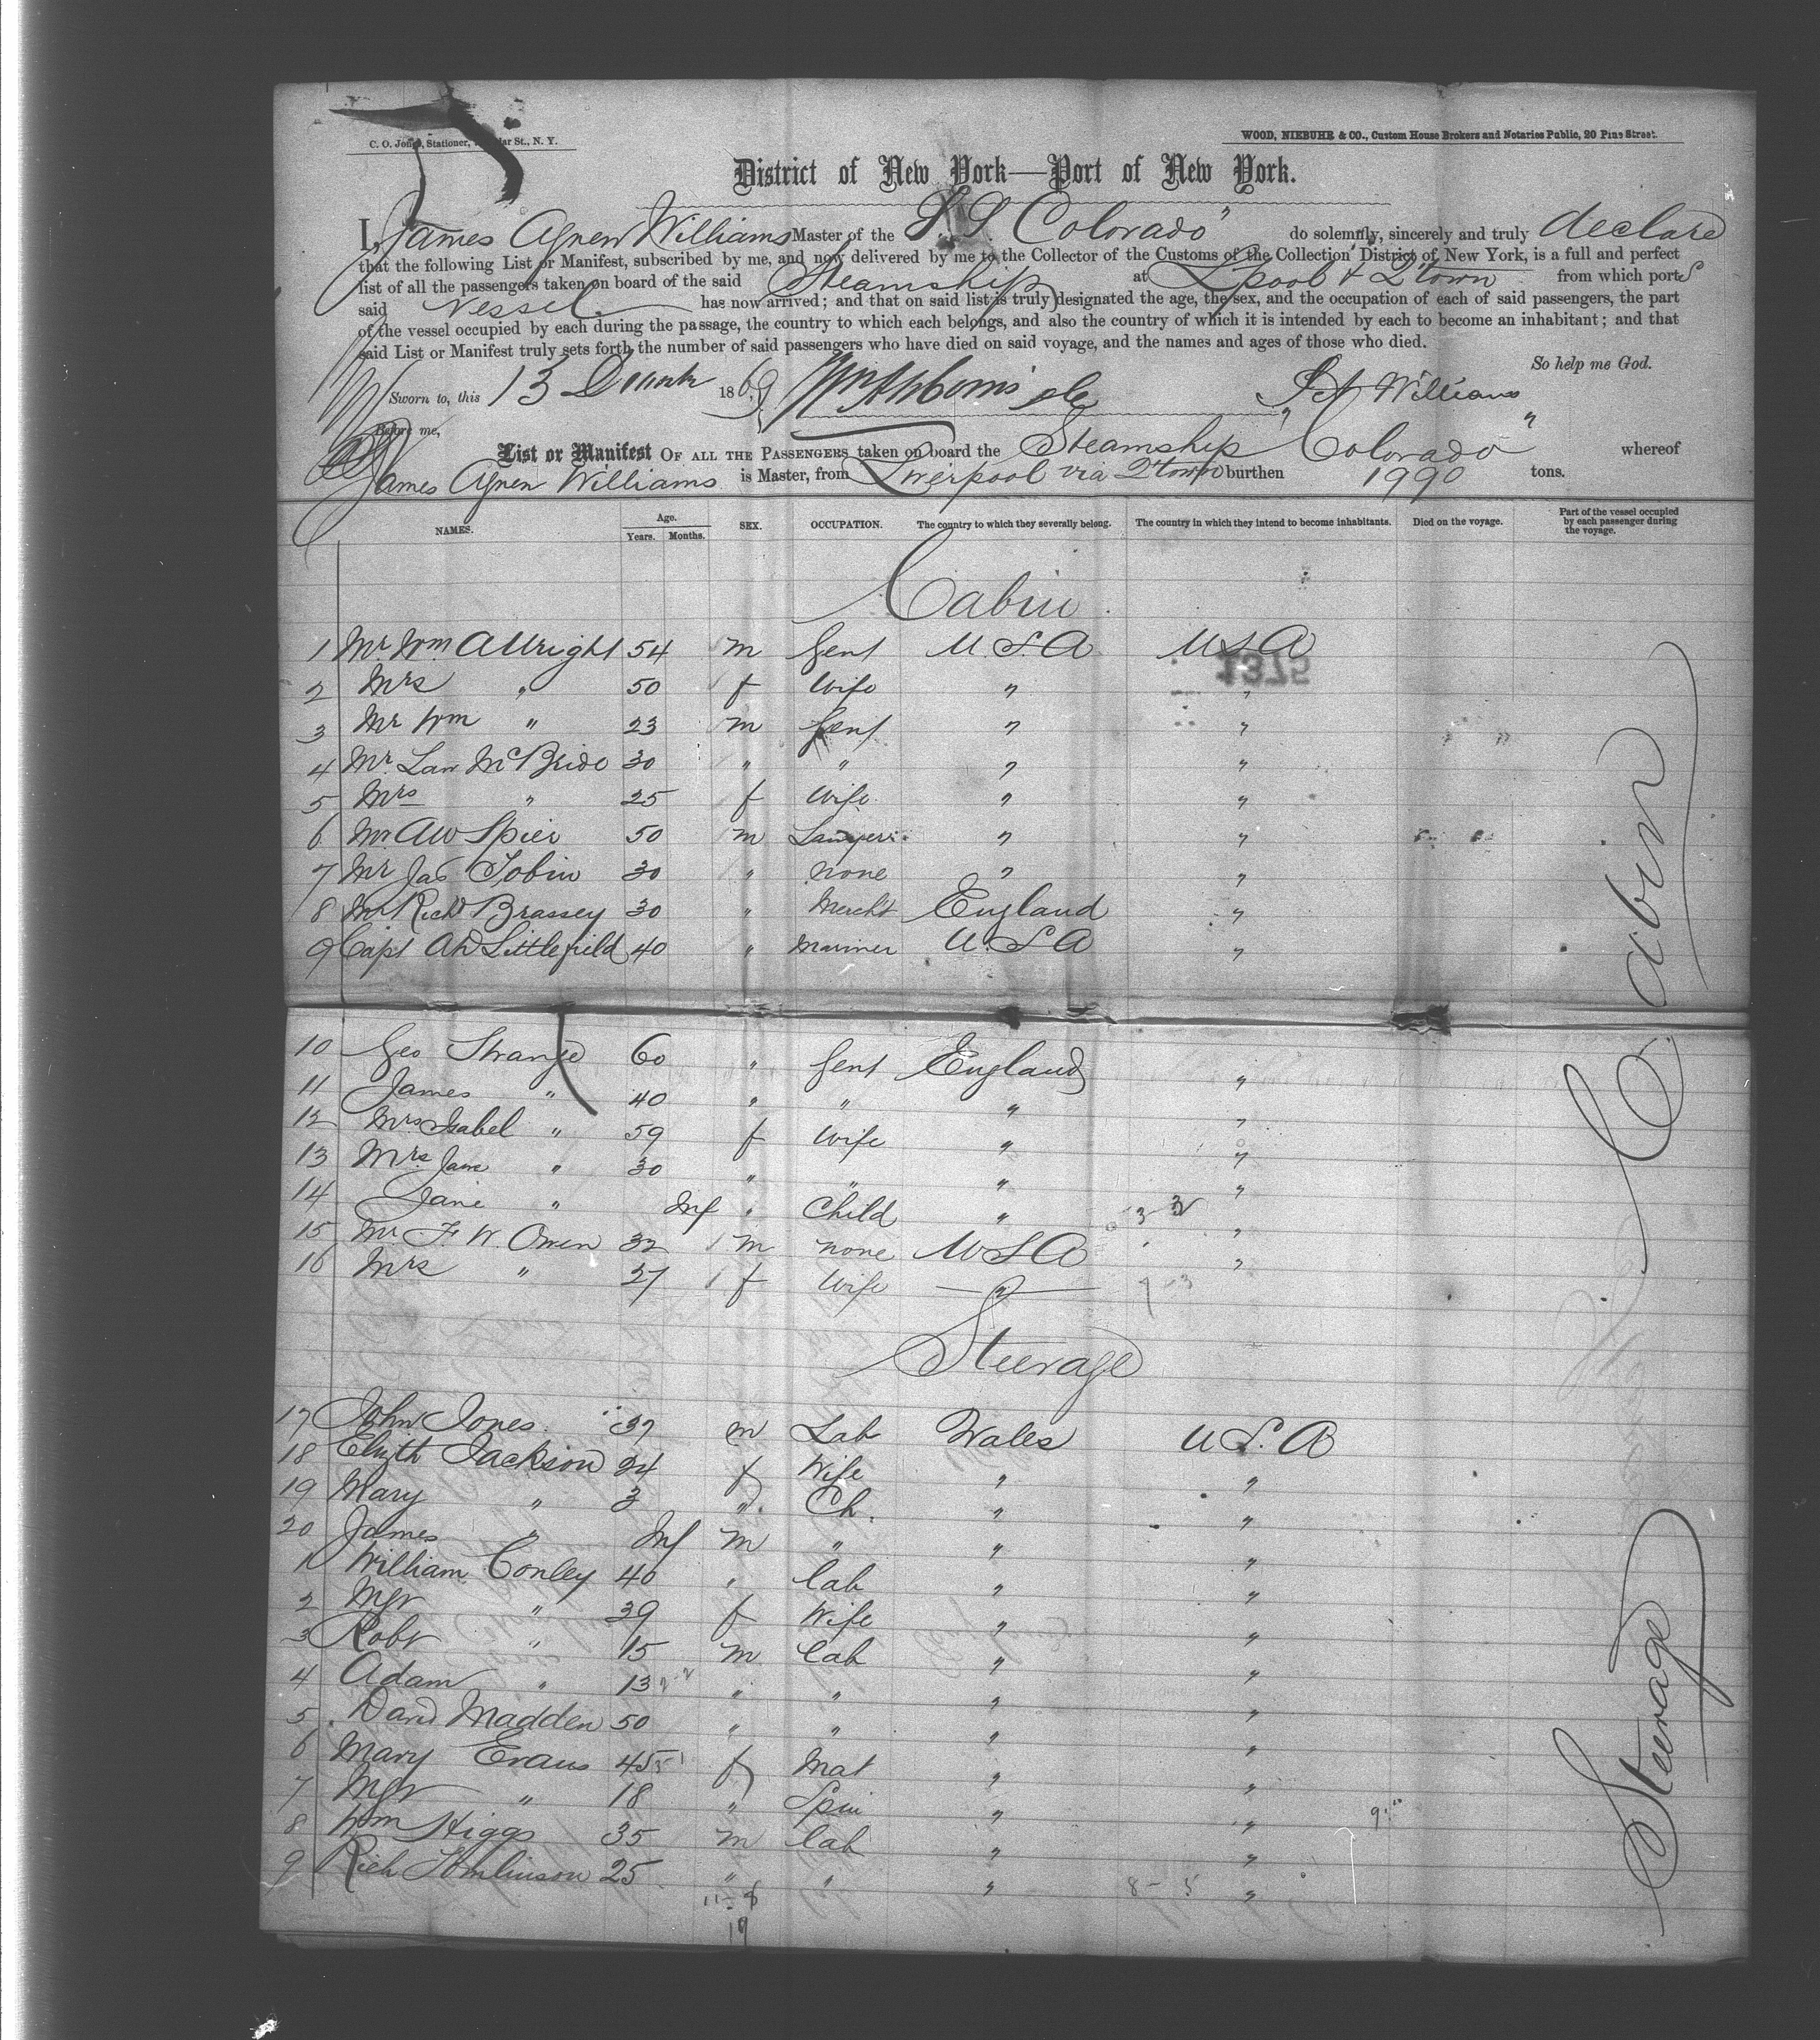 C. O. Jones, Stationer, St., N. Y.
WOOD, NIEBUHR & CO., Custom House Brokers and Notaries Public, 20 Pine Street.
District of New York—Port of New York.
I, James Agnew Williams Master of the S.S. Colorado" do solemnly, sincerely and truly declare
that the following List or Manifest, subscribed by me, and now delivered by me to the Collector of the Customs of the Collection District of New York, is a full and perfect
list of all the passengers taken on board of the said Steamship at Lpool & Qtown from which ports
said Vessel has now arrived; and that on said list is truly designated the age, the sex, and the occupation of each of said passengers, the part
of the vessel occupied by each during the passage, the country to which each belongs, and also the country of which it is intended by each to become an inhabitant; and that
said List or Manifest truly sets forth the number of said passengers who have died on said voyage, and the names and ages of those who died.
So help me God.
Sworn to, this 13 1869 J A Williams
Before me,
List or Manifest OF ALL THE PASSENGERS taken on board the Steamship "Colorado" whereof
James Agnew Williams is Master, from Liverpool via Qtown burthen 1990 tons.
NAMES. Age. Years. Months. SEX. OCCUPATION. The country to which they severally belong. The country in which they intend to become inhabitants. Died on the voyage. Part of the vessel occupied by each passenger during the voyage.
Cabin
1 Mr. Wm. Allright 54 m Gent U.S.A U S A
1375
2 Mrs " 50 f Wife " "
3 Mr Wm " 23 m Gent " "
4 Mr. Law McBride 30 " " " "
5 Mrs " 25 f Wife " "
6 Mr. A W Spier 50 m Lawyer " "
7 Mr Jas Tobin 30 " None " "
8 Mr Richd Brassey 30 " Mercht England "
9 Capt A D Littlefield 40 " Mariner U.S.A "
10 Geo Strange 60 " Gent England "
11 James " 40 " " " "
12 Mrs Isabel " 59 f Wife " "
13 Mrs Jane " 30 " " " "
14 Jane " Inf " Child " "
15 Mr. F. W. Owen 32 m None U S A "
16 Mrs " 27 f Wife " "
Cabin
Steerage
17 John Jones 37 m Lab Wales U S. A
18 Elizth Jackson 24 f Wife " "
19 Mary " 3 " Ch. " "
20 James " Inf m " " "
1 William Conley 40 " Lab " "
2 Mgt " 39 f Wife " "
3 Robt " 15 m Lab " "
4 Adam " 13 " " " "
5 David Madden 50 " " " "
6 Mary Evans 45 f Mat " "
7 Mgt " 18 " Spin " "
8 Wm Higgs 35 m Lab " "
9 Rich Tomlinson 25 " " " "
Steerage